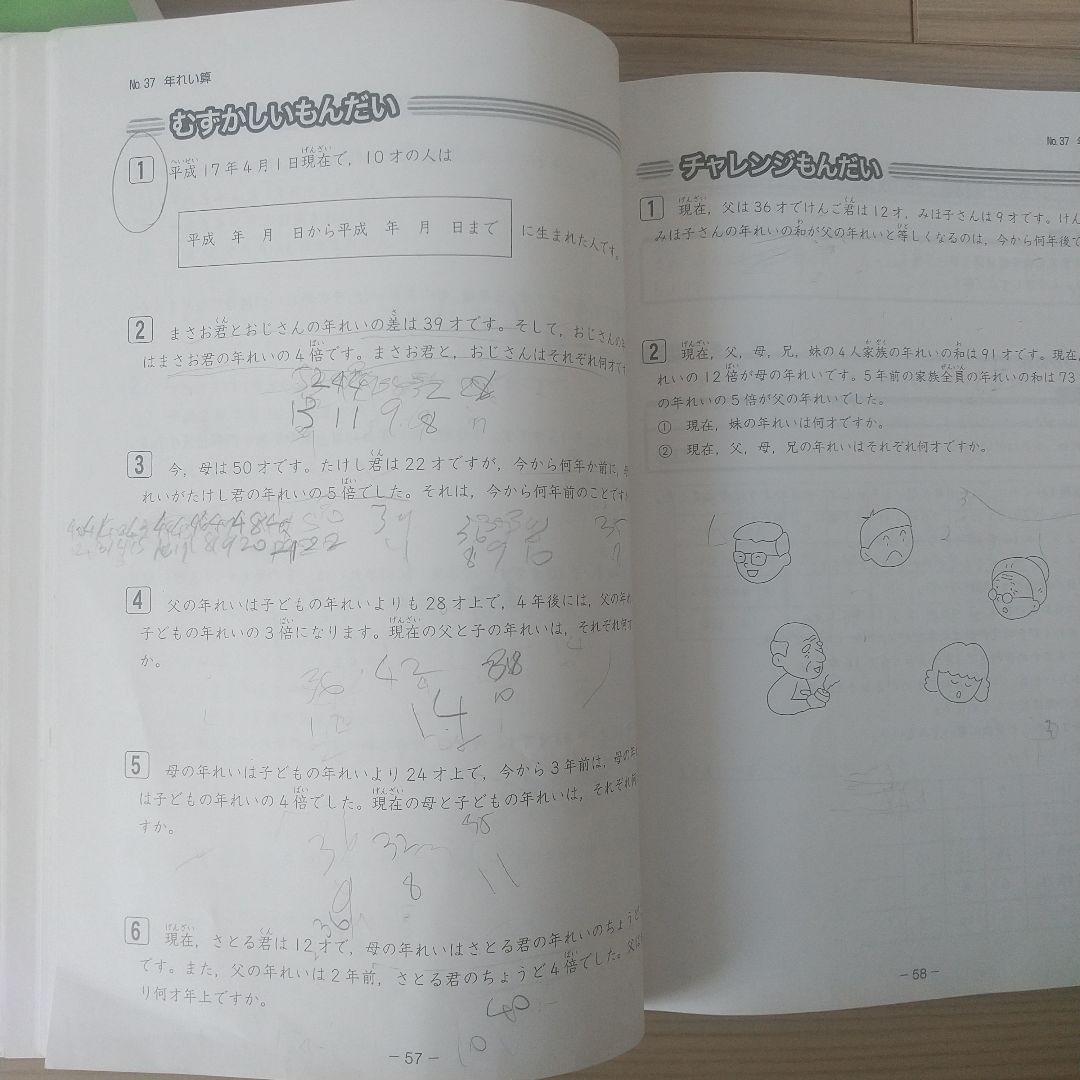 No.37 年れい算
むずかしいもんだい
1 平成17年4月1日現在で，10才の人は
平成　年　月　日から平成　年　月　日まで に生まれた人です。
2 まさお君とおじさんの年れいの差は39才です。そして，おじさんの
はまさお君の年れいの4倍です。まさお君と，おじさんはそれぞれ何才で
52 44
13 11 9 8
3 今，母は50才です。たけし君は22才ですが，今から何年か前に，
れいがたけし君の年れいの5倍でした。それは，今から何年前のことです
4 父の年れいは子どもの年れいよりも28才上で，4年後には，父の年れ
子どもの年れいの3倍になります。現在の父と子の年れいは，それぞれ何才で
か。
36 42 38
14 10
5 母の年れいは子どもの年れいより24才上で，今から3年前は，母の年
は子どもの年れいの4倍でした。現在の母と子どもの年れいは，それぞれ何
すか。
36 32 35
9 8 11
36
6 現在，さとる君は12才で，母の年れいはさとる君の年れいのちょうど
です。また，父の年れいは2年前，さとる君のちょうど4倍でした。父は
り何才年上ですか。
40
10
－57－
No.37
チャレンジもんだい
1 現在，父は36才でけんご君は12才，みほ子さんは9才です。けん
みほ子さんの年れいの和が父の年れいと等しくなるのは，今から何年後で
2 現在，父，母，兄，妹の4人家族の年れいの和は91才です。現在，
れいの12倍が母の年れいです。5年前の家族全員の年れいの和は73
の年れいの5倍が父の年れいでした。
① 現在，妹の年れいは何才ですか。
② 現在，父，母，兄の年れいはそれぞれ何才ですか。
－58－